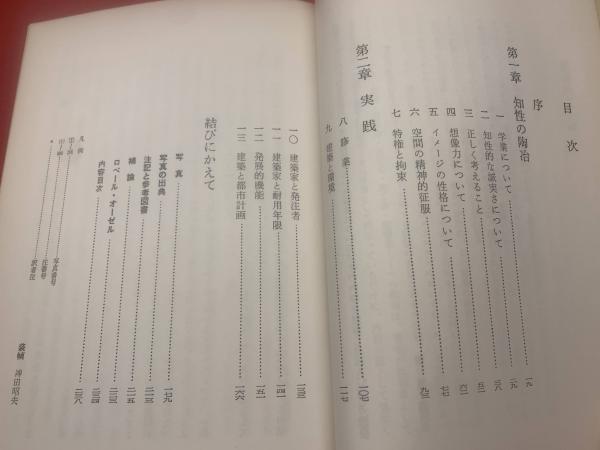 目次
序
第一章 知性の陶冶
一 学業について 一九
二 知性的な誠実さについて 二九
三 正しく考えること 三八
四 想像力について 五一
五 イメージの性格について 六三
六 空間の精神的征服 七七
七 特権と拘束 九三
第二章 実践
八 修業 一〇七
九 建築と環境 一一七
一〇 建築家と発注者 一三三
一一 建築家と耐用年限 一四一
一二 発展的機能 一五一
一三 建築と都市計画 一六六
結びにかえて
写真 一七九
写真の出典
注記と参考図書 二一三
補論 二一五
ロベール・オーゼル
内容目次 二三八
凡例
写真番号
注番号
訳者注
装幀 神田昭夫